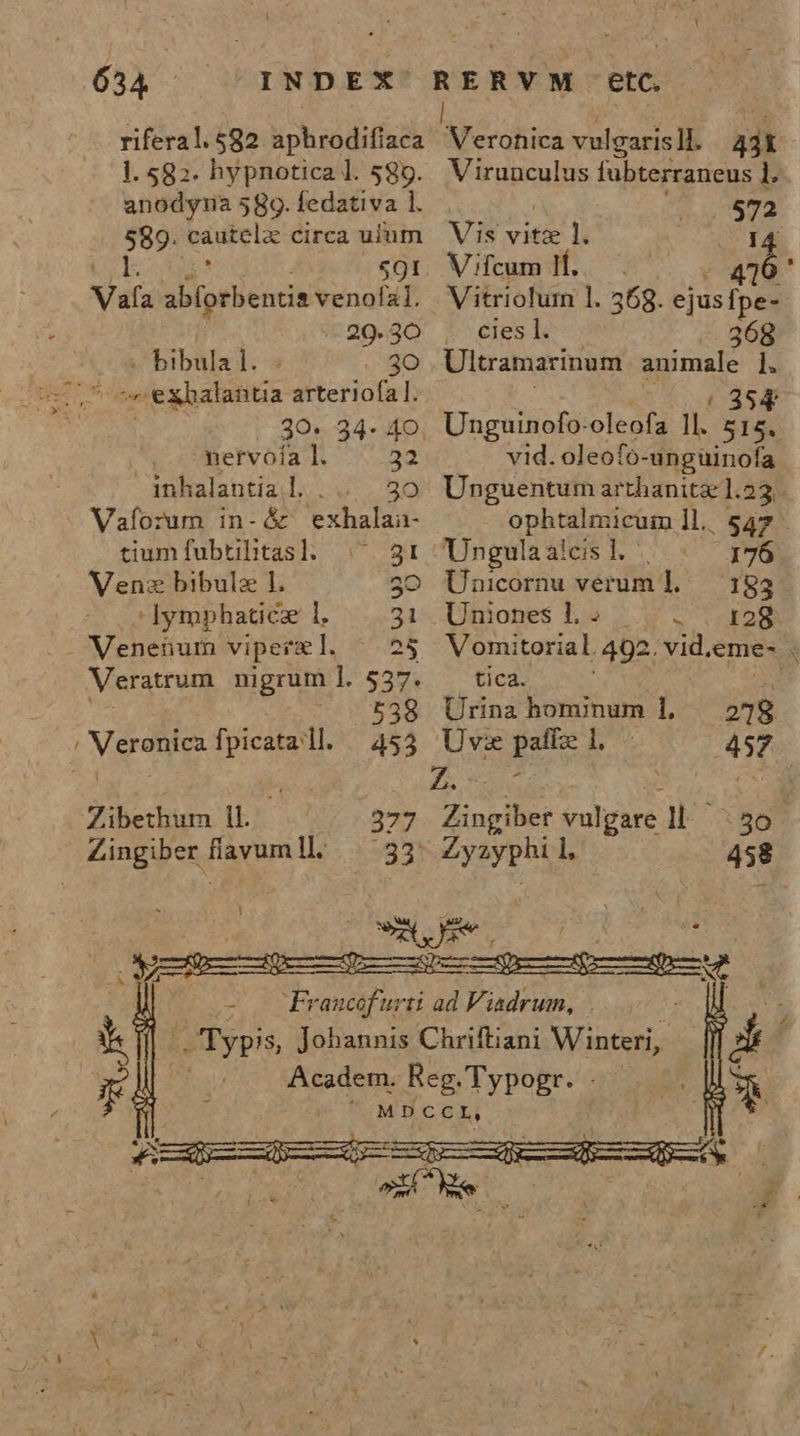 634 INDEX RERVM etc.
riferal. 582 aphrodiſiaca
l. 582. hypnotica l. 589.
anodyna 589. ſedativa l.
589. cautelæ circa uſum
l. 591
Vaſa abſorbentia venoſa l.
29. 30
bibula l. 30
exhalantia arterioſa l.
30. 34. 40
nervoſa l. 32
inhalantia l. 30
Vaſorum in- & exhalan-
tium ſubtilitas l. 31
Venæ bibulæ l. 30
lymphaticæ l. 31
Venenum viperæ l. 25
Veratrum nigrum l. 537.
538
Veronica ſpicata ll. 453
Veronica vulgaris ll. 431
Virunculus ſubterraneus l.
572
Vis vitæ l. 14
Viſcum ll. 476
Vitriolum l. 368. ejus ſpe-
cies l. 368
Ultramarinum animale l.
354
Unguinoſo-oleoſa ll. 515.
vid. oleoſo-unguinoſa
Unguentum arthanitæ l. 23
ophtalmicum ll. 547
Ungula alcis l. 176
Unicornu verum l. 183
Uniones l. 128
Vomitoria l. 492. vid. eme-
tica.
Urina hominum l. 278
Uvæ paſſæ l. 457
Z.
Zibethum ll. 377
Zingiber flavum ll. 33
Zingiber vulgare ll 30
Zyzyphi l. 458
Francofurti ad Viadrum,
Typis, Johannis Chriſtiani Winteri,
Academ. Reg. Typogr.
MDCCL,